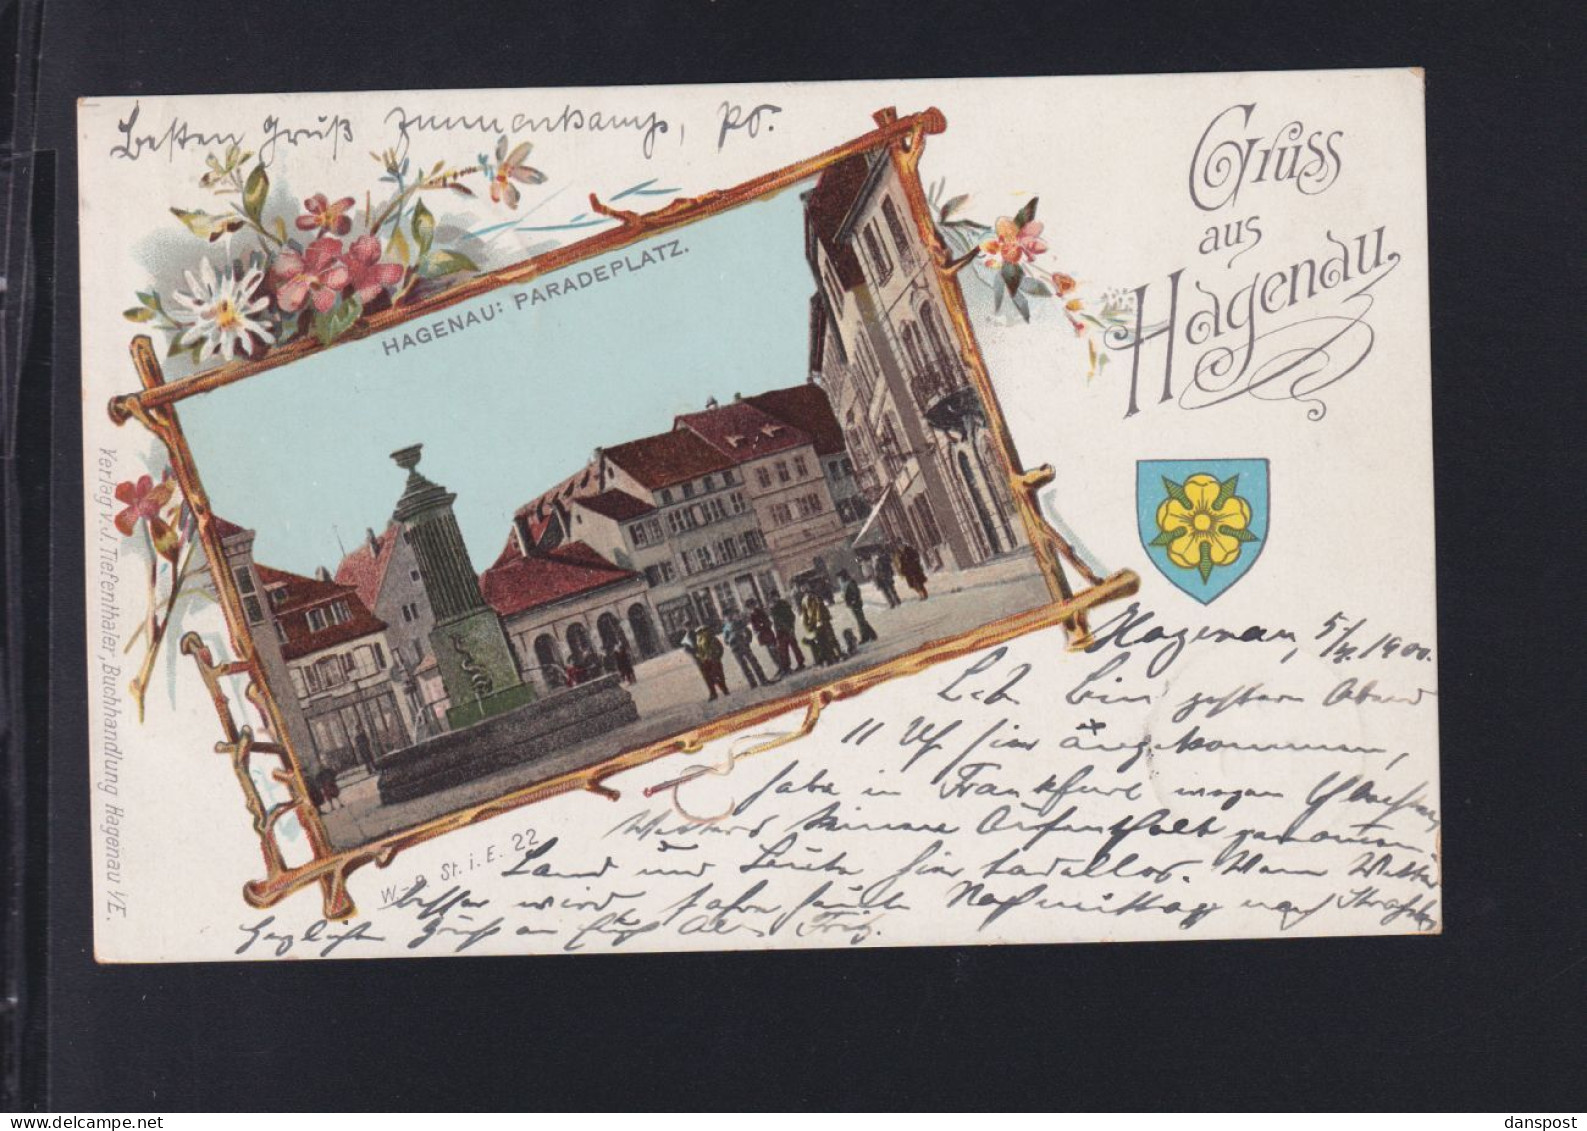 Besten Gruß Zimmerkamp, 
Gruss
aus
Hagenau
HAGENAU: PARADEPLATZ.
Verlag v. J. Tiefenthaler, Buchhandlung Hagenau i/E.
St. i. E. 22
Hagenau, 5/4. 1900.
bin gestern Abend
11 Uhr hier angekommen,
habe in Frankfurt wegen
Wetters keinen Aufenthalt genommen
Land und Leute hier tadellos. Wenn Wetter
besser wird fahre heute Nachmittag nach Straßburg
Herzlichen Gruß an Euch Alle Fritz.
danspost